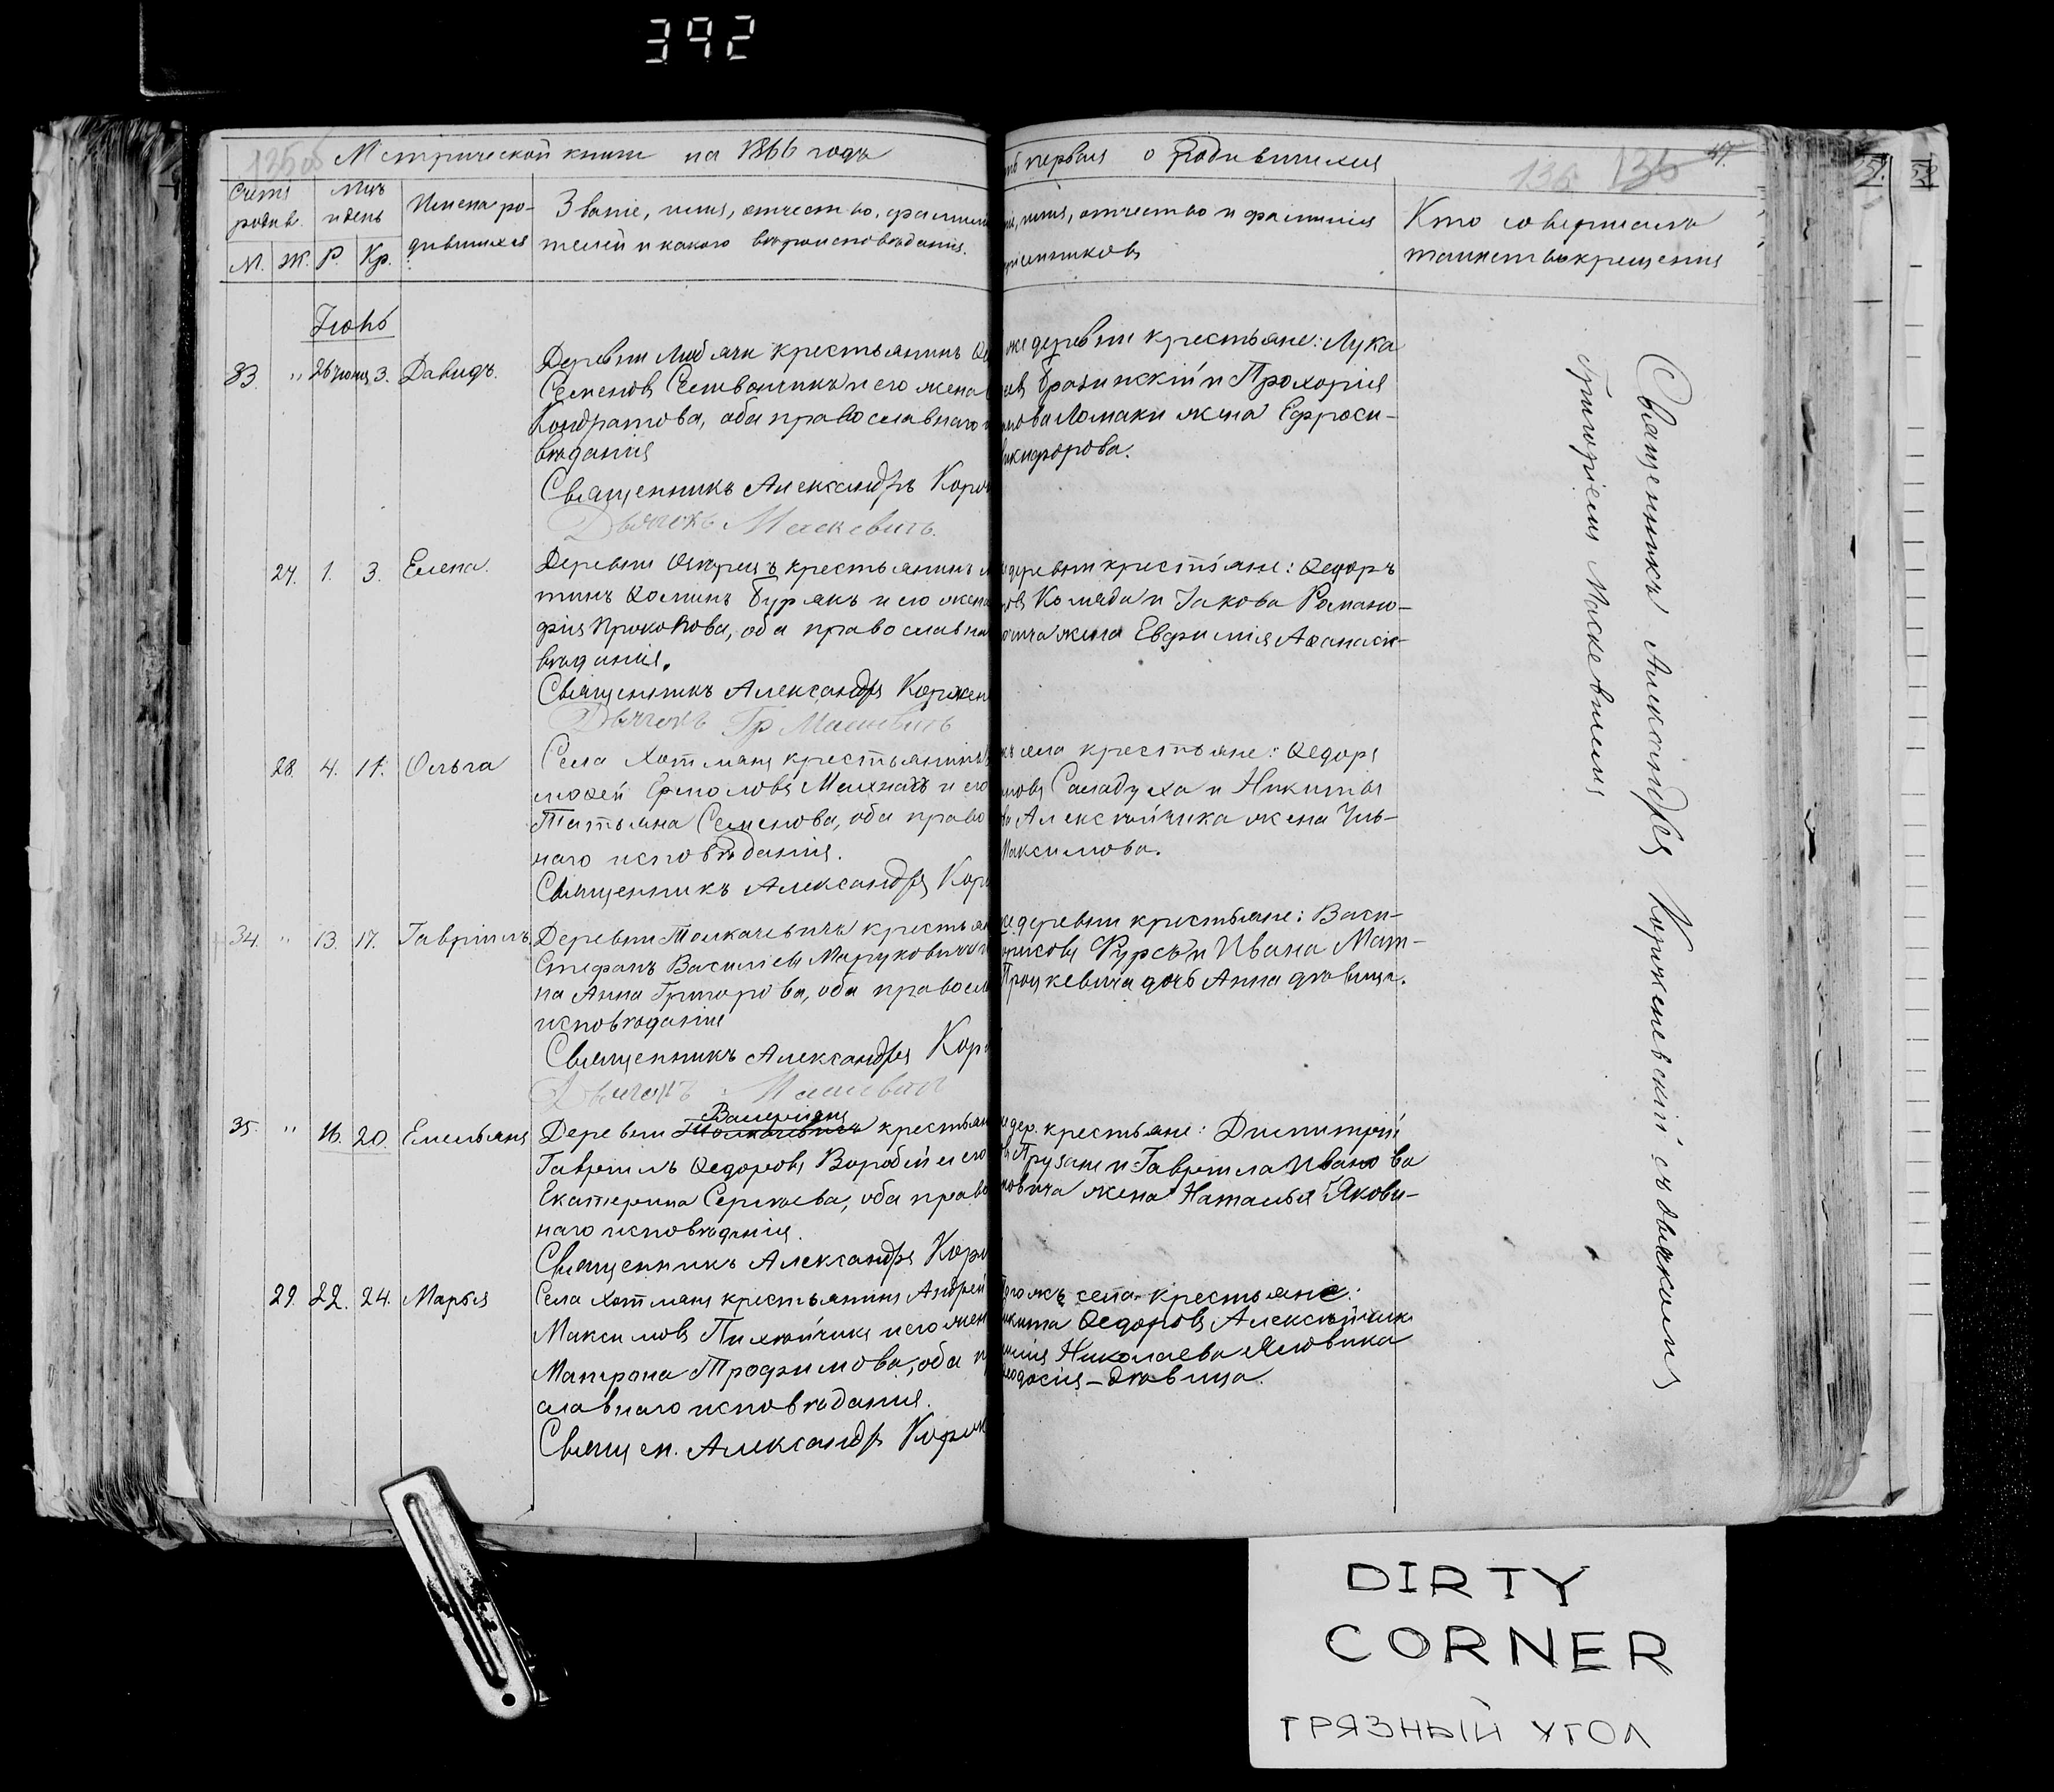 392
Метрической книги на 1866 годъ
Счетъ родив.
М. Ж.
Мцъ и день
Р. Кр.
Имена родившихся
Званіе, имя, отчество, фамилі
телей и какого вѣроисповѣданія.
Іюль
33. " 26 іюня 3. Давидъ.
Деревни крестьянинъ
Семеновъ и его жена
Кондратова, оба православнаго
вѣданія
Священникъ Александръ Корж
Дьячокъ Маскевичъ.
27. 1. 3. Елена.
Деревни крестьянинъ
тинъ Ѳоминъ Бурякъ и его жена
фія Прокопова, оба православна
вѣданія.
Священникъ Александръ Коржен
Дьячокъ Гр Маскевичъ
28. 4. 17. Ольга
Села Хотляны крестьянинъ
Ермоловъ и его
Татьяна Семенова, оба право
наго исповѣданія.
Священникъ Александръ Кор
34. " 13. 17. Гавріилъ
Деревни Толкачевичъ крестьян
Стефанъ Васильевъ Маруковичъ
на Анна Григорова, оба правосл
исповѣданія
Священникъ Александръ Корж
Дьячокъ Маскевичъ
35. " 16. 20. Емельянъ
Деревни Толкачевичъ крестьян
Гавріилъ Ѳедоровъ Воробей и его
Екатерина Сергѣева, оба право
наго исповѣданія.
Священникъ Александръ Корж
29. 22. 24. Марья
Села Хотляны крестьянинъ Андрей
Максимовъ Пилхѣйчикъ и его жен
Матрона Трофимова, оба п
славнаго исповѣданія.
Священ. Александръ Корж
ть первая о родившихся
136 136
іе, имя, отчество и фамилія
пріемниковъ
Кто совершалъ
таинство крещенія
же деревни крестьяне: Лука
евъ Бразинскій и Прохорія
нова Ломаки жена Ефроси-
икифорова.
деревни крестьяне: Ѳедоръ
овъ Коляда и Іакова Романо-
вича жена Евфимія Аѳанасіе-
къ села крестьяне: Ѳедоръ
новъ Саладуха и Никиты
Алексѣйчика жена Уль-
Максимова.
же деревни крестьяне: Васи-
орисовъ Фурсъ и Ивана Мат-
Процкевича дочь Анна дѣвица.
дер. крестьяне: Димитрій
Прузан и Гавріила Иванова
новича жена Наталья Якови-
тогожъ села крестьяне:
икита Ѳедоровъ Алексѣйчикъ
Николаева Яловика
еодосія - дѣвица.
Священникъ Александръ Корженевскій съ дьячкомъ
Григоріемъ Маскевичемъ
DIRTY
CORNER
ГРЯЗНЫЙ УГОЛ